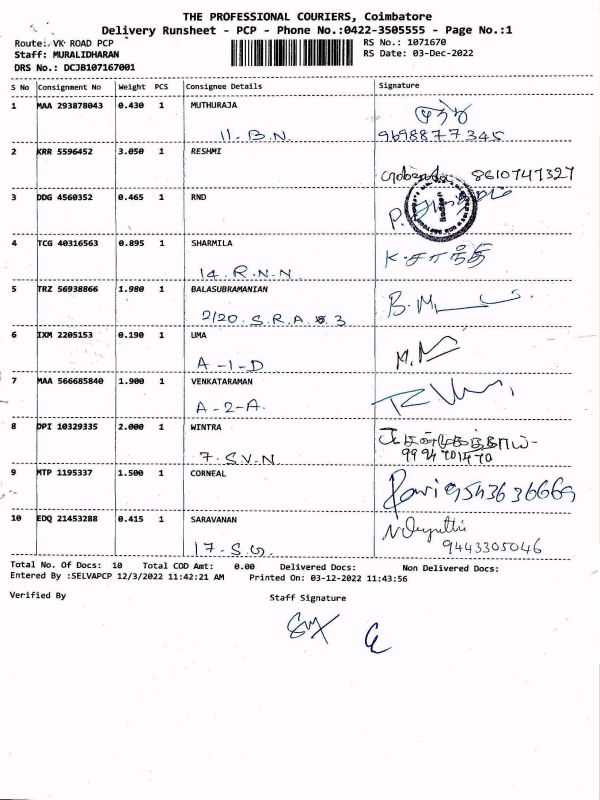 THE PROFESSIONAL COURIERS, Coimbatore
Delivery Runsheet - PCP - Phone No.:0422-3505555 - Page No.:1
Route: VK ROAD PCP
RS No.: 1071670
Staff: MURALIDHARAN
RS Date: 03-Dec-2022
DRS No.: DCJB107167001
S No Consignment No Weight PCS Consignee Details Signature
1 MAA 293878043 0.430 1 MUTHURAJA
11. B.N. 9698877345
2 KRR 5596452 3.050 1 RESHMI
8610747327
3 DDG 4560352 0.465 1 RND
P.
4 TCG 40316563 0.895 1 SHARMILA K. சாந்தி
14. R.N.N
5 TRZ 56938866 1.980 1 BALASUBRAMANIAN
2/20 S.R.A 3
6 IXM 2205153 0.190 1 UMA
A-1-D
7 MAA 566685840 1.900 1 VENKATARAMAN
A-2-A.
8 DPI 10329335 2.000 1 WINTRA
7. S.V.N 9994701470
9 MTP 1195337 1.500 1 CORNEAL
Ravi 9543636669
10 EDQ 21453288 0.415 1 SARAVANAN
17. S.G. 9443305046
Total No. Of Docs: 10 Total COD Amt: 0.00 Delivered Docs: Non Delivered Docs:
Entered By :SELVAPCP 12/3/2022 11:42:21 AM Printed On: 03-12-2022 11:43:56
Verified By Staff Signature